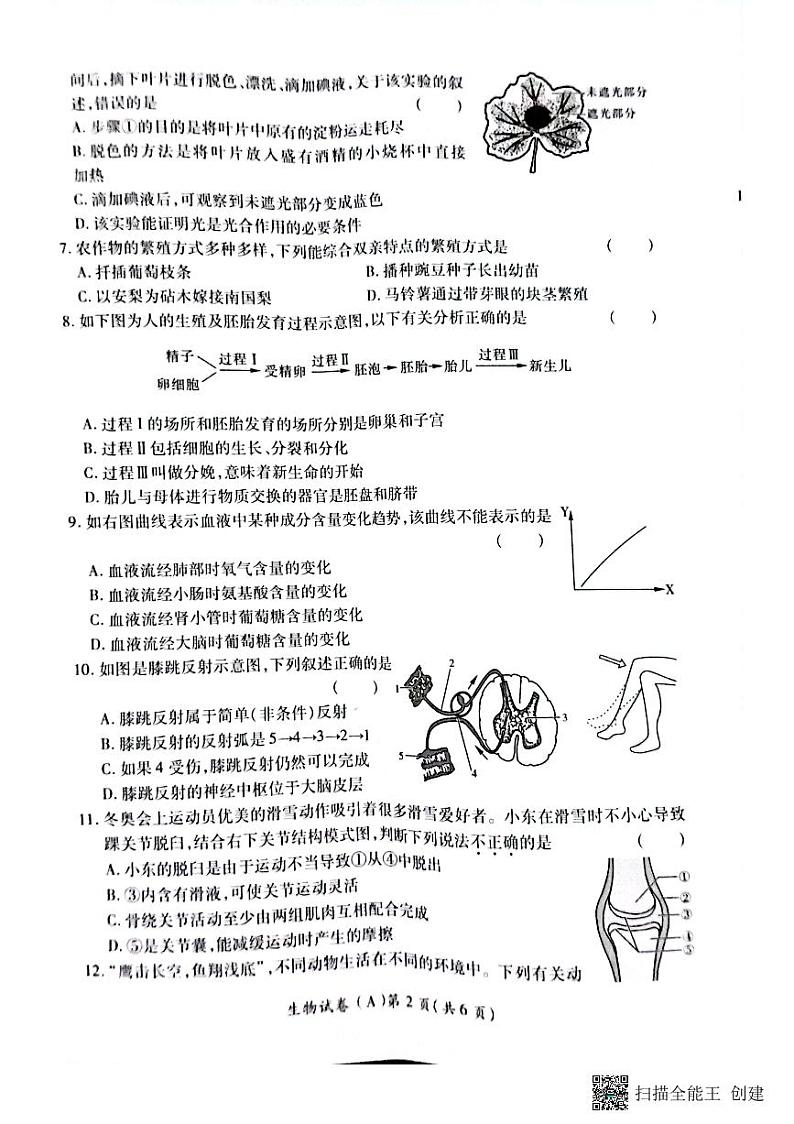 间后,摘下叶片进行脱色、漂洗、滴加碘液,关于该实验的叙
述,错误的是 ( )
未遮光部分
遮光部分
A. 步骤①的目的是将叶片中原有的淀粉运走耗尽
B. 脱色的方法是将叶片放入盛有酒精的小烧杯中直接
加热
C. 滴加碘液后,可观察到未遮光部分变成蓝色
D. 该实验能证明光是光合作用的必要条件
7. 农作物的繁殖方式多种多样,下列能综合双亲特点的繁殖方式是 ( )
A. 扦插葡萄枝条 B. 播种豌豆种子长出幼苗
C. 以安梨为砧木嫁接南国梨 D. 马铃薯通过带芽眼的块茎繁殖
8. 如下图为人的生殖及胚胎发育过程示意图,以下有关分析正确的是 ( )
精子
卵细胞
过程Ⅰ 受精卵 过程Ⅱ 胚泡→胚胎→胎儿 过程Ⅲ 新生儿
A. 过程Ⅰ的场所和胚胎发育的场所分别是卵巢和子宫
B. 过程Ⅱ包括细胞的生长、分裂和分化
C. 过程Ⅲ叫做分娩,意味着新生命的开始
D. 胎儿与母体进行物质交换的器官是胚盘和脐带
9. 如右图曲线表示血液中某种成分含量变化趋势,该曲线不能表示的是
( )
Y
X
A. 血液流经肺部时氧气含量的变化
B. 血液流经小肠时氨基酸含量的变化
C. 血液流经肾小管时葡萄糖含量的变化
D. 血液流经大脑时葡萄糖含量的变化
10. 如图是膝跳反射示意图,下列叙述正确的是
( )
1
2
3
4
5
A. 膝跳反射属于简单(非条件)反射
B. 膝跳反射的反射弧是5→4→3→2→1
C. 如果4受伤,膝跳反射仍然可以完成
D. 膝跳反射的神经中枢位于大脑皮层
11. 冬奥会上运动员优美的滑雪动作吸引着很多滑雪爱好者。小东在滑雪时不小心导致
踝关节脱臼,结合右下关节结构模式图,判断下列说法不正确的是 ( )
A. 小东的脱臼是由于运动不当导致①从④中脱出
B. ③内含有滑液,可使关节运动灵活
C. 骨绕关节活动至少由两组肌肉互相配合完成
D. ⑤是关节囊,能减缓运动时产生的摩擦
①
②
③
④
⑤
12. “鹰击长空,鱼翔浅底”,不同动物生活在不同的环境中。下列有关动
生物试卷(A)第2页(共6页)
1
扫描全能王 创建